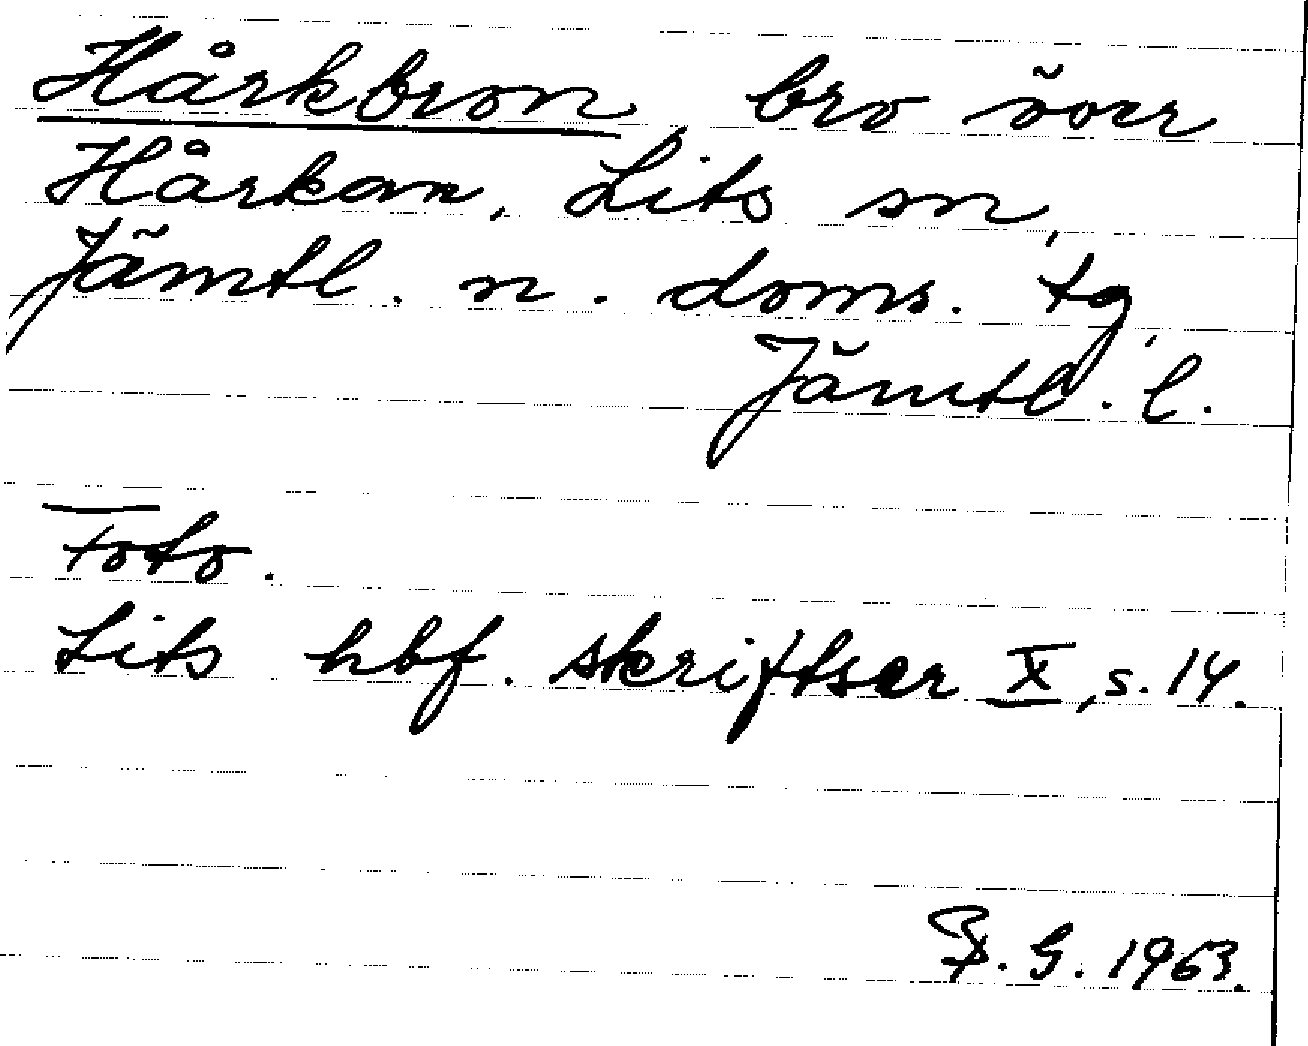 Hårkbron, bro över
Hårkan, Lits sn,
Jämtl. n. doms. tg,
Jämtl. l.
Foto.
Lits hbf. skriftser X, s. 14.
G. 1963.